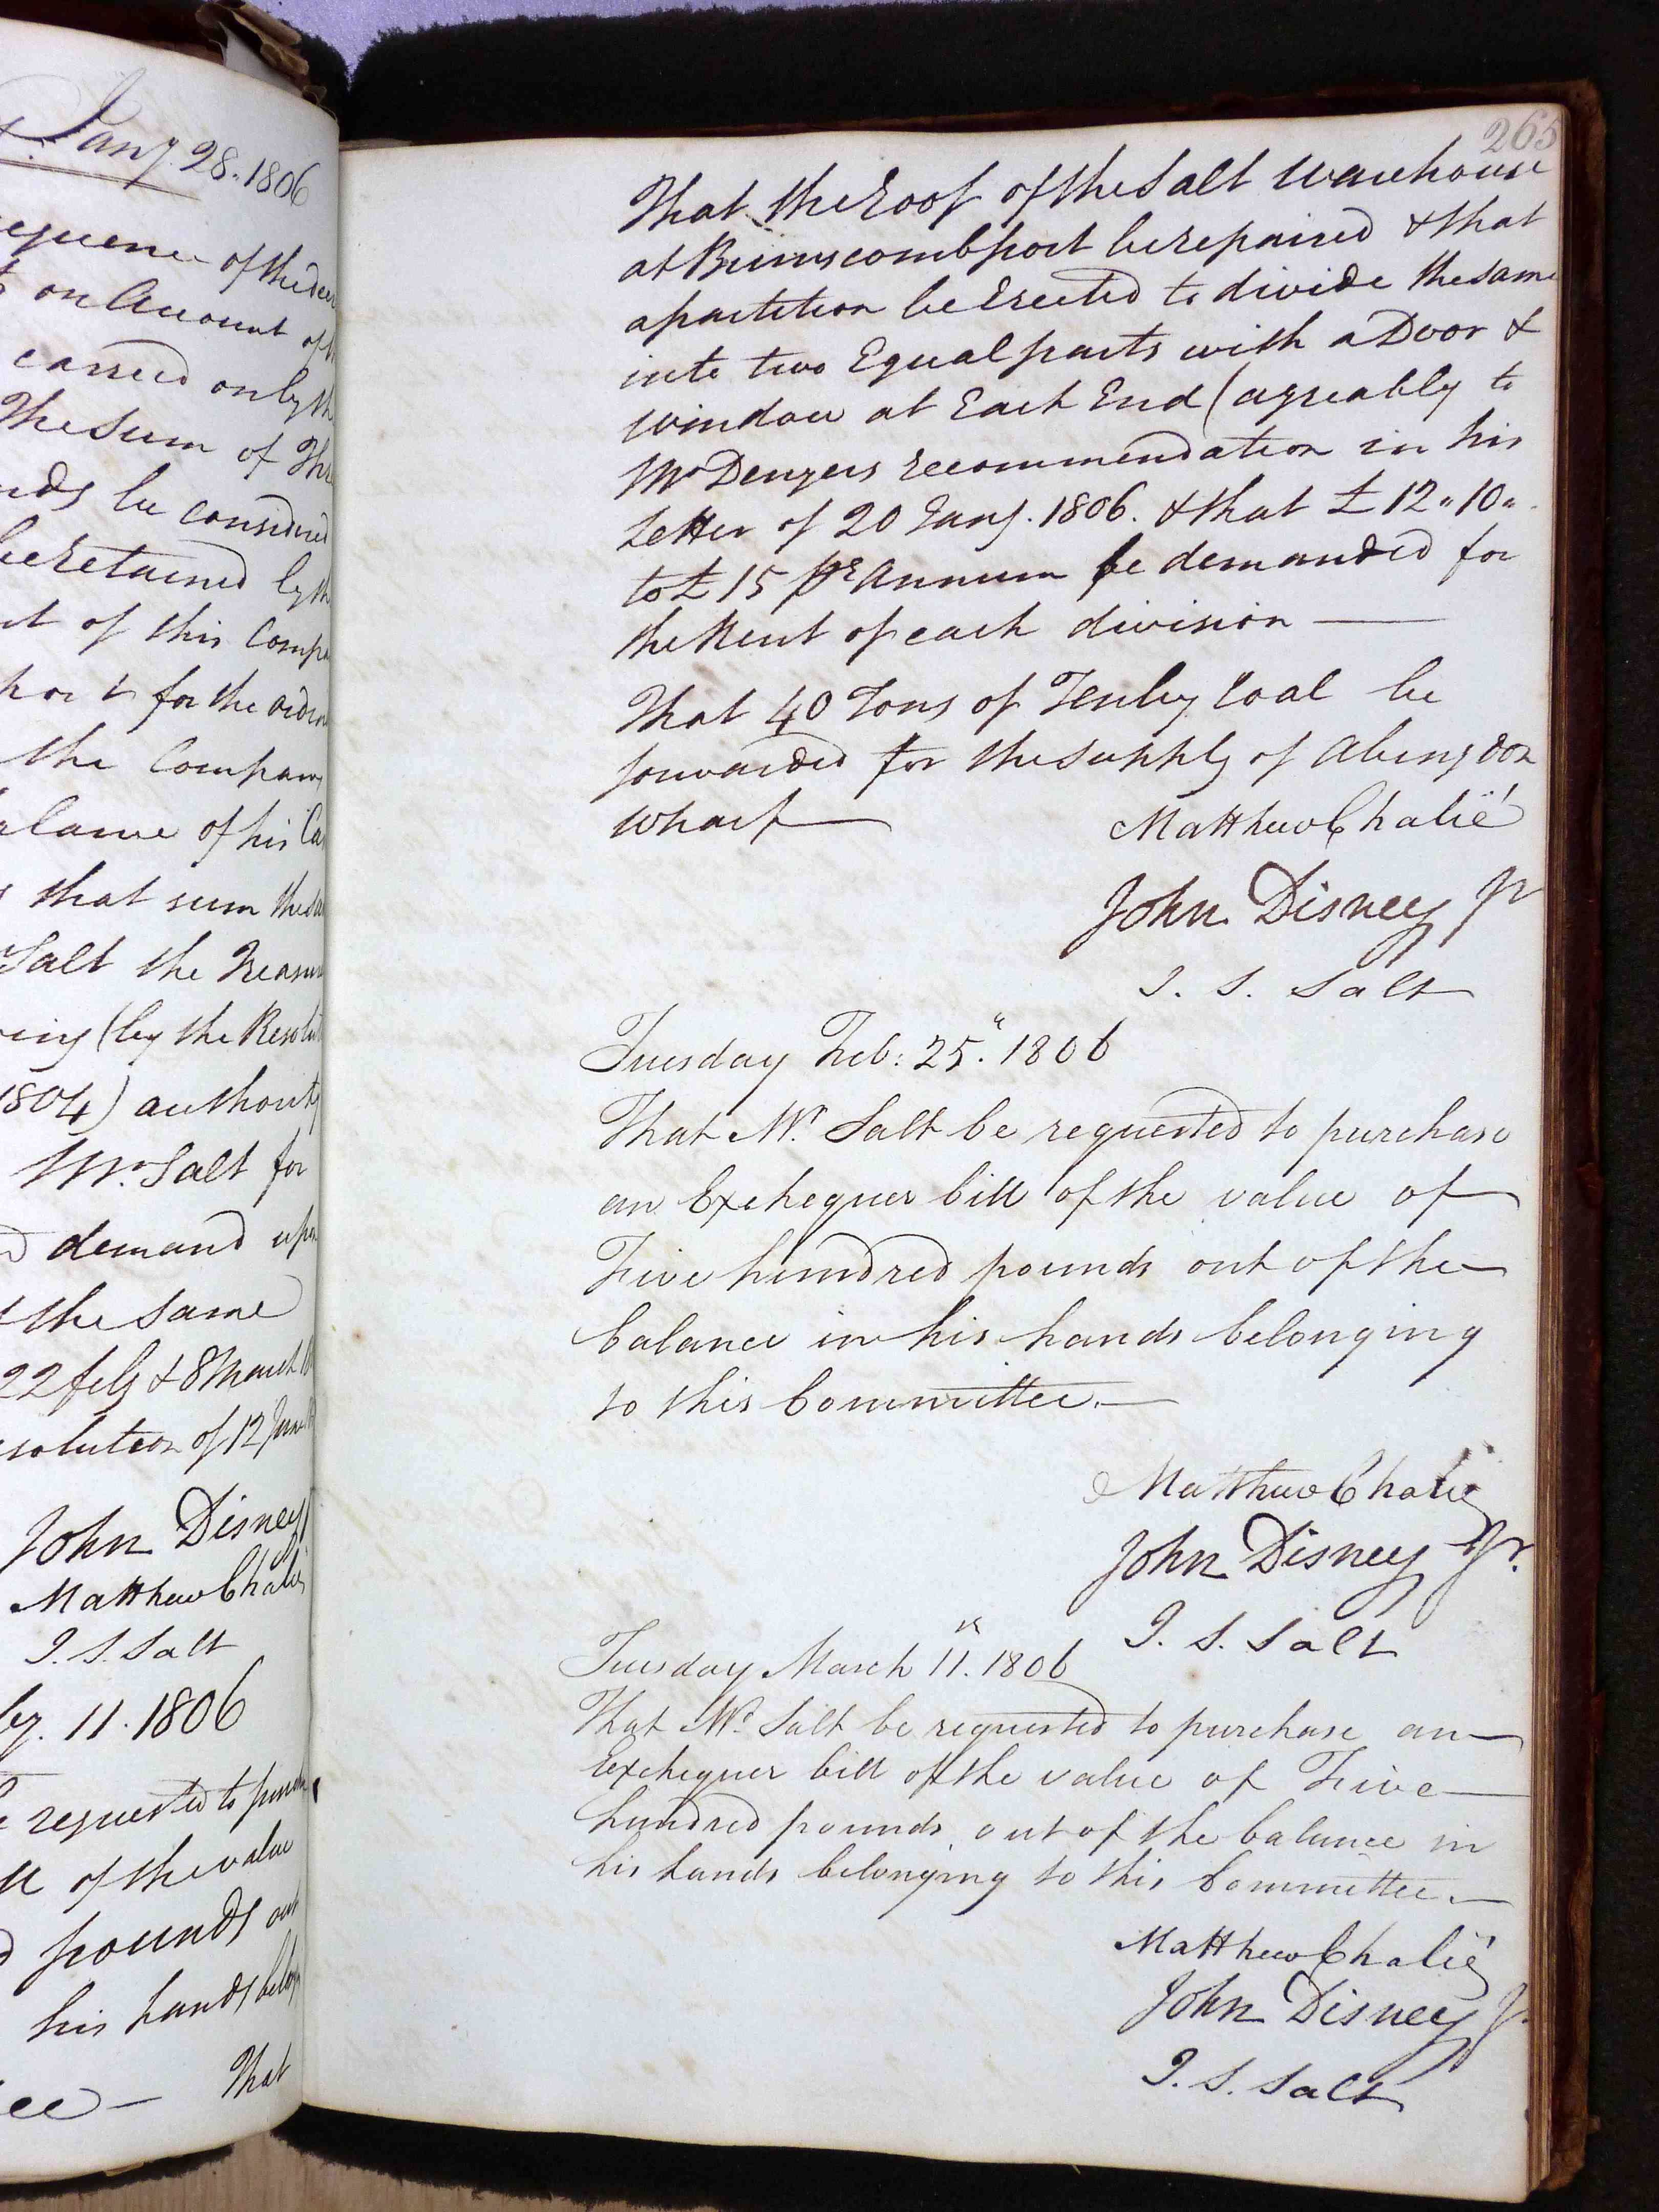 Jany. 28. 1806
equence of the
on Account of
carried only th
The Sum of
be considered
be retained by th
t of this Compa
for the
the Company
alance of his
that sum the
Salt the Treasur
ing (by the Resolut
1804) authority
Mr. Salt for
demand upon
the same
22 feby & 8 March
solution of 12 June
John Disney
Matthew Chalié
I. S. Salt
by. 11. 1806
requested to purch
of the value
pounds out
his hands belong
ee — That
265
That the Roof of the Salt Warehouse
at Brimscombport be repaired & that
a partition be Erected to divide the same
into two Equal parts with a Door &
Window at Each End (agreably to
Mr Denyers recommendation in his
Letter of 20 Jany. 1806. & that £12"10"
to £15 Pr Annum be demanded for
the Rent of each division —
That 40 Tons of Tenby Coal be
forwarded for the supply of Abingdon
Wharf —
Matthew Chalié
John Disney Jr
I. S. Salt
Tuesday Feb: 25. 1806
That Mr. Salt be requested to purchase
an Exchequer bill of the value of
Five hundred pounds out of the
balance in his hands belonging
to this Committee. —
Matthew Chalié
John Disney Jr.
I. S. Salt
Tuesday March 11. 1806
That Mr. Salt be requested to purchase an
Exchequer bill of the value of Five
hundred pounds out of the balance in
his hands belonging to this Committee. —
Matthew Chalié
John Disney Jr
I. S. Salt